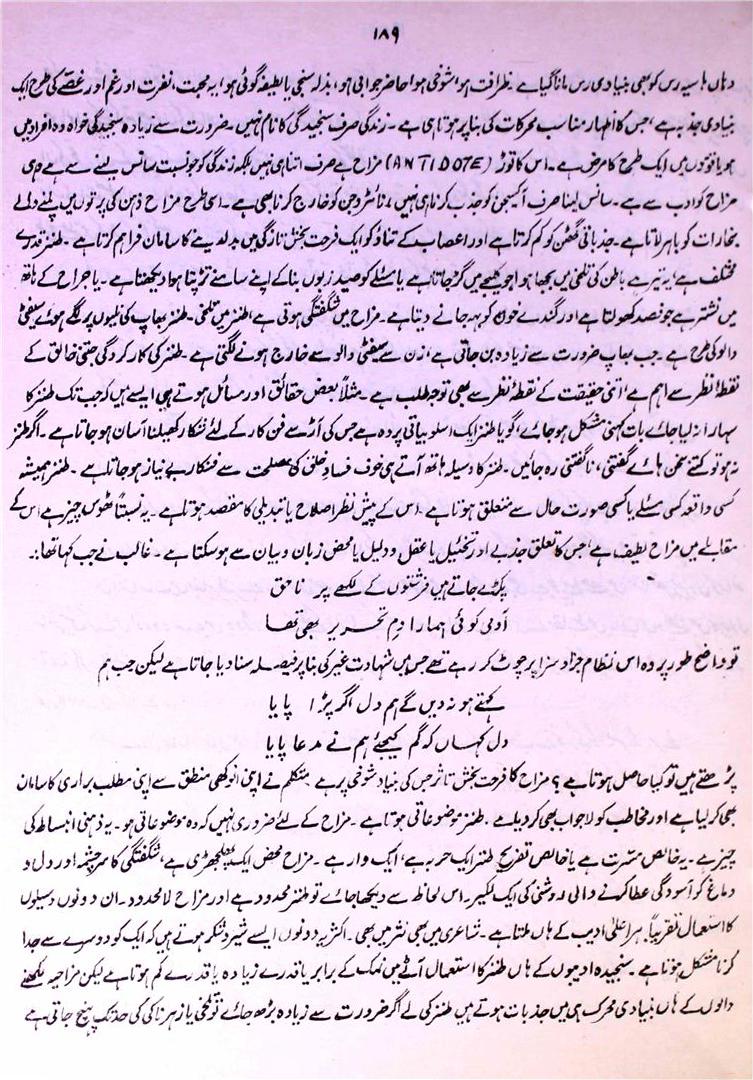 ۱۸۹
وہاں ہاسیہ رس کو بھی بنیادی رس مانا گیا ہے ۔ ظرافت ہو، شوخی ہو، حاضر جوابی ہو، بذلہ سنجی یا لطیفہ گوئی ہو، یہ محبت، نفرت اور غم اور غصے کی طرح ایک
بنیادی جذبہ ہے، جس کا اظہار مناسب محرکات کی بنا پر ہوتا ہی ہے ۔ زندگی صرف سنجیدگی کا نام نہیں ۔ ضرورت سے زیادہ سنجیدگی خواہ وہ افراد میں
ہو یا قوتوں میں ایک طرح کا مرض ہے ۔ اس کا توڑ (ANTIDOTE) مزاح ہے صرف اتنا ہی نہیں بلکہ زندگی کو جو نسبت سانس لینے سے ہے وہی
مزاح کو ادب سے ہے ۔ سانس لینا صرف آکسیجن کو جذب کرنا ہی نہیں، نائٹروجن کو خارج کرنا بھی ہے ۔ اسی طرح مزاح ذہن کی پرتوں میں پلنے والے
بخارات کو باہر لاتا ہے ۔ جذباتی گھٹن کو کم کرتا ہے اور اعصاب کے تناؤ کو ایک فرحت بخش تازگی میں بدلدینے کا سامان فراہم کرتا ہے ۔ طنز قدرے
مختلف ہے، یہ تیر ہے باطن کی تلخی میں بجھا ہوا جو کلیجے میں گڑ جاتا ہے یا مسئلے کو صید زبوں بنا کے اپنے سامنے تڑپتا ہوا دیکھتا ہے ۔ یا جراح کے ہاتھ
میں نشتر ہے جو فصد کھولتا ہے اور گندے خون کو بہہ جانے دیتا ہے ۔ مزاح میں شگفتگی ہوتی ہے، طنز میں تلخی ۔ طنز بھاپ کی نلیوں پر لگے ہوئے سیفٹی
والو کی طرح ہے ۔ جب بھاپ ضرورت سے زیادہ بن جاتی ہے، زن سے سیفٹی والو سے خارج ہونے لگتی ہے ۔ طنز کی کارکردگی جتنی خالق کے
نقطۂ نظر سے اہم ہے، اتنی حقیقت کے نقطۂ نظر سے بھی توجہ طلب ہے ۔ مثلاً بعض حقائق اور مسائل ہوتے ہی ایسے ہیں کہ جب تک طنز کا
سہارا نہ لیا جائے بات کہنی مشکل ہو جائے، گویا طنز ایک اسلوبیاتی پردہ ہے جس کی آڑ سے فن کار کے لئے شکار کھیلنا آسان ہو جاتا ہے ۔ اگر طنز
نہ ہو تو کتنے سخن ہائے گفتنی، ناگفتنی رہ جائیں ۔ طنز کا وسیلہ ہاتھ آتے ہی خوف فساد خلق کی مصلحت سے فنکار بے نیاز ہو جاتا ہے ۔ طنز ہمیشہ
کسی واقعہ کسی مسئلے یا کسی صورت حال سے متعلق ہوتا ہے ۔ اس کے پیش نظر اصلاح یا تبدیلی کا مقصد ہوتا ہے ۔ یہ نسبتاً ٹھوس چیز ہے اس کے
مقابلے میں مزاح لطیف ہے، جس کا تعلق جذبے اور تخئیل یا عقل و دلیل یا محض زبان و بیان سے ہو سکتا ہے ۔ غالب نے جب کہا تھا:۔
پکڑے جاتے ہیں فرشتوں کے لکھے پر ناحق
آدمی کوئی ہمارا دم تحریر بھی تھا
تو واضح طور پر وہ اس نظام جزا و سزا پر چوٹ کر رہے تھے جس میں شہادت غیر کی بنا پر فیصلہ سنا دیا جاتا ہے لیکن جب ہم
کہتے ہو نہ دیں گے ہم دل اگر پڑا پایا
دل کہاں کہ گم کیجئے ہم نے مدعا پایا
پڑھتے ہیں تو کیا حاصل ہوتا ہے؟ مزاح کا فرحت بخش تاثر جس کی بنیاد شوخی پر ہے متکلم نے اپنی انوکھی منطق سے اپنی مطلب براری کا سامان
بھی کر لیا ہے اور مخاطب کو لاجواب بھی کر دیا ہے ۔ طنز موضوعاتی ہوتا ہے ۔ مزاح کے لئے ضروری نہیں کہ وہ موضوعاتی ہو ۔ یہ ذہنی انبساط کی
چیز ہے ۔ یہ خالص مسرت ہے یا خالص تفریح طنز ایک حربہ ہے، ایک وار ہے ۔ مزاح محض ایک پھلجھڑی ہے، شگفتگی کا سرچشمہ اور دل و
دماغ کو آسودگی عطا کرنے والی روشنی کی ایک لکیر ۔ اس لحاظ سے دیکھا جائے تو طنز محدود ہے اور مزاح لامحدود ۔ ان دونوں وسیلوں
کا استعمال تقریباً ہر اعلیٰ ادیب کے ہاں ملتا ہے ۔ شاعری میں بھی نثر میں بھی ۔ اکثر یہ دونوں ایسے شیر و شکر ہوتے ہیں کہ ایک کو دوسرے سے جدا
کرنا مشکل ہوتا ہے ۔ سنجیدہ ادیبوں کے ہاں طنز کا استعمال آٹے میں نمک کے برابر یا قدرے زیادہ یا قدرے کم ہوتا ہے لیکن مزاحیہ لکھنے
والوں کے ہاں بنیادی محرک ہی میں جذبات ہوتے ہیں طنز کی لے اگر ضرورت سے زیادہ بڑھ جائے تو تلخی یا زہرناکی کی حد تک پہنچ جاتی ہے